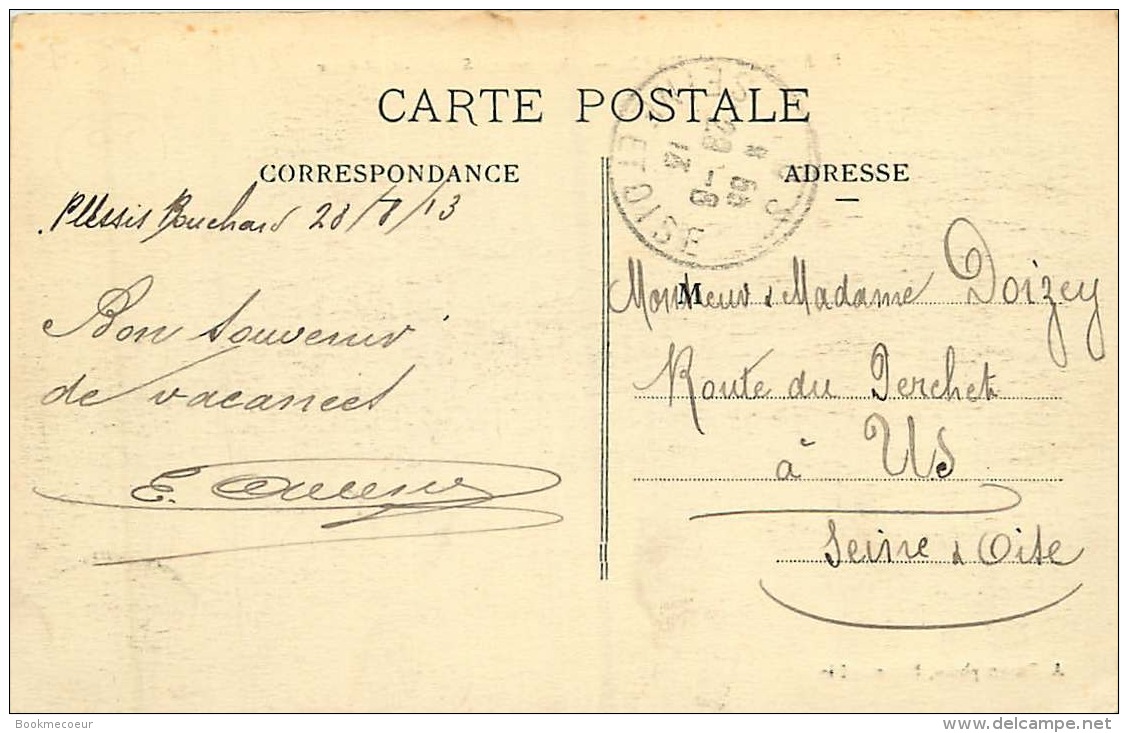 CARTE POSTALE
CORRESPONDANCE
Plessis Bouchard 28/8/13
Bon Souvenir
de vacances
E.
ADRESSE
M
Monsieur & Madame Doizey
Route du Perchet
à Us
Seine & Oise
SEINE ET OISE
28 - 8
13
Bookmecoeur
delcampe.net